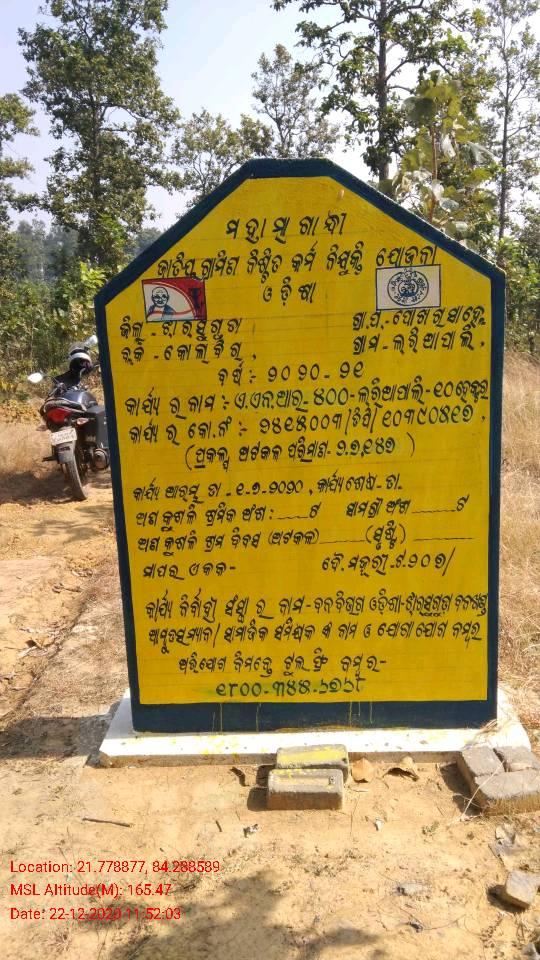 ମହାତ୍ମା ଗାନ୍ଧୀ
ଜାତିୟ ଗ୍ରାମିଣ ନିଶ୍ଚିତ କର୍ମ ନିଯୁକ୍ତି ଯୋଜନା
ଓଡ଼ିଶା
ଜିଲ୍ଲା - ଝାରସୁଗୁଡା ଗ୍ରା.ପ.- ପୋଖରାସାଲେ
ବ୍ଲକ - କୋଲାବିରା, ଗ୍ରାମ - ଲରିଆପାଲି,
ବର୍ଷ :- ୨୦୨୦ - ୨୧
କାର୍ଯ୍ୟ ର ନାମ :- ଏ.ଏନ.ଆର୍- ୪୦୦ - ଲରିଆପାଲି-୧୦ହେକ୍ଟର
କାର୍ଯ୍ୟ ର କୋ.ନଂ :- ୨୪୧୫୦୦୩/ଡିପି/୧୦୩୯୦୪୧୭,
(ପ୍ରକଳ୍ପ ଅଟକଳ ପରିମାଣ- ୨,୭,୧୪୭)
କାର୍ଯ୍ୟ ଆରମ୍ଭ ତା - ୧-୭-୨୦୨୦, କାର୍ଯ୍ୟ ଶେଷ - ତା.
ଅଣ କୁଶଳି ଶ୍ରମିକ ଅଂଶ :-____ଟ ସାମଗ୍ରୀ ଅଂଶ ____ଟ
ଅଣ କୁଶଳି ଶ୍ରମ ଦିବସ (ଅଟକଳ)____(ସୃଷ୍ଟି)____
ମାପର ଏକକ - ଦୈ. ମଜୁରୀ - ଟ.୨୦୭/
କାର୍ଯ୍ୟ ନିର୍ବାହୀ ସଂସ୍ଥା ର ନାମ - ବନବିଭାଗ ଓଡ଼ିଶା-ଝାରସୁଗୁଡା ବନଖଣ୍ଡ
ସାମାଜିକ ସମିକ୍ଷକ ଙ୍କ ନାମ ଓ ଯୋଗାଯୋଗ ନମ୍ବର
ଅଭିଯୋଗ ନିମନ୍ତେ ଟୁଲ ଫ୍ରି ନମ୍ବର-
୧୮୦୦-୩୪୫-୬୭୬୮
Location: 21.778877, 84.288589
MSL Altitude(M): 165.47
Date: 22-12-2020 11:52:03